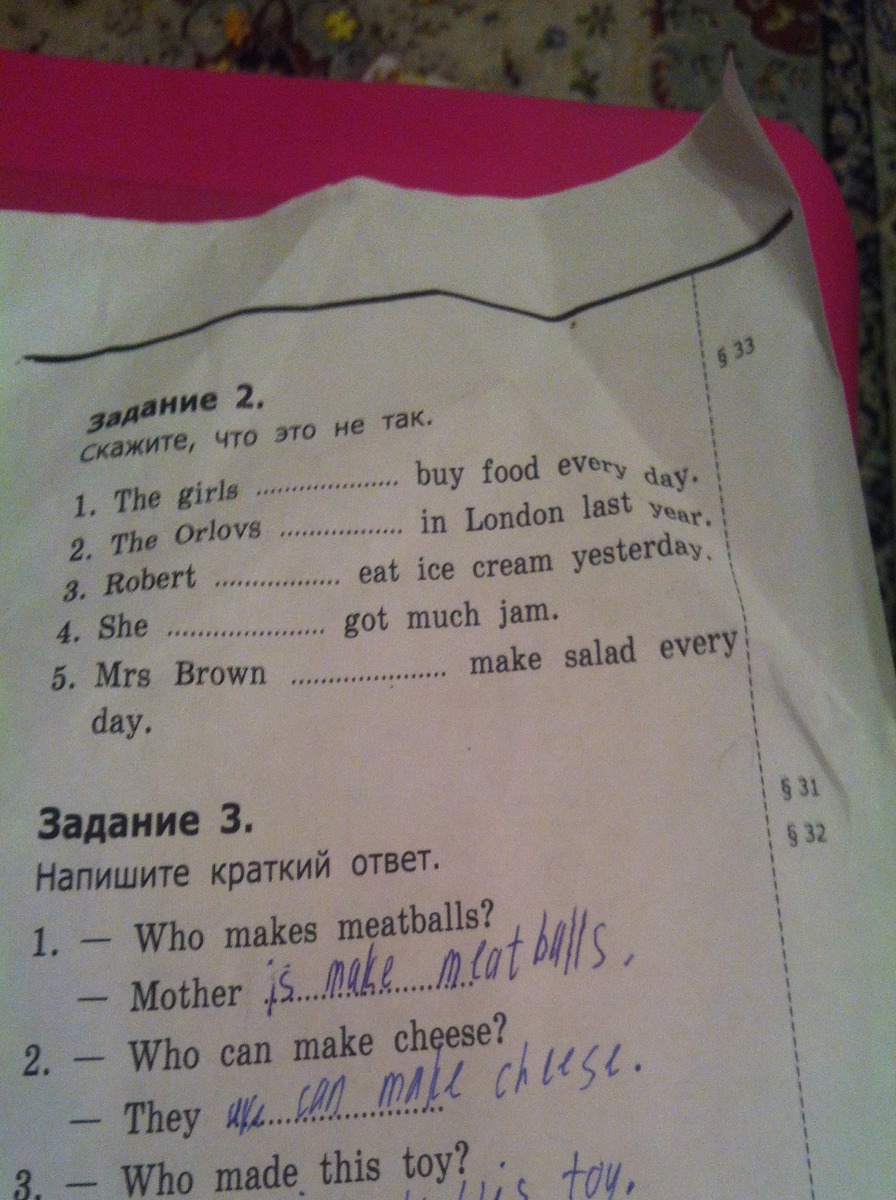 § 33
Задание 2.
Скажите, что это не так.
1. The girls .................... buy food every day.
2. The Orlovs ................. in London last year.
3. Robert ................. eat ice cream yesterday.
4. She ...................... got much jam.
5. Mrs Brown ...................... make salad every
day.
§ 31
Задание 3.
§ 32
Напишите краткий ответ.
1. — Who makes meatballs?
— Mother is make meatballs.
2. — Who can make cheese?
— They can make cheese.
3. — Who made this toy?
toy.